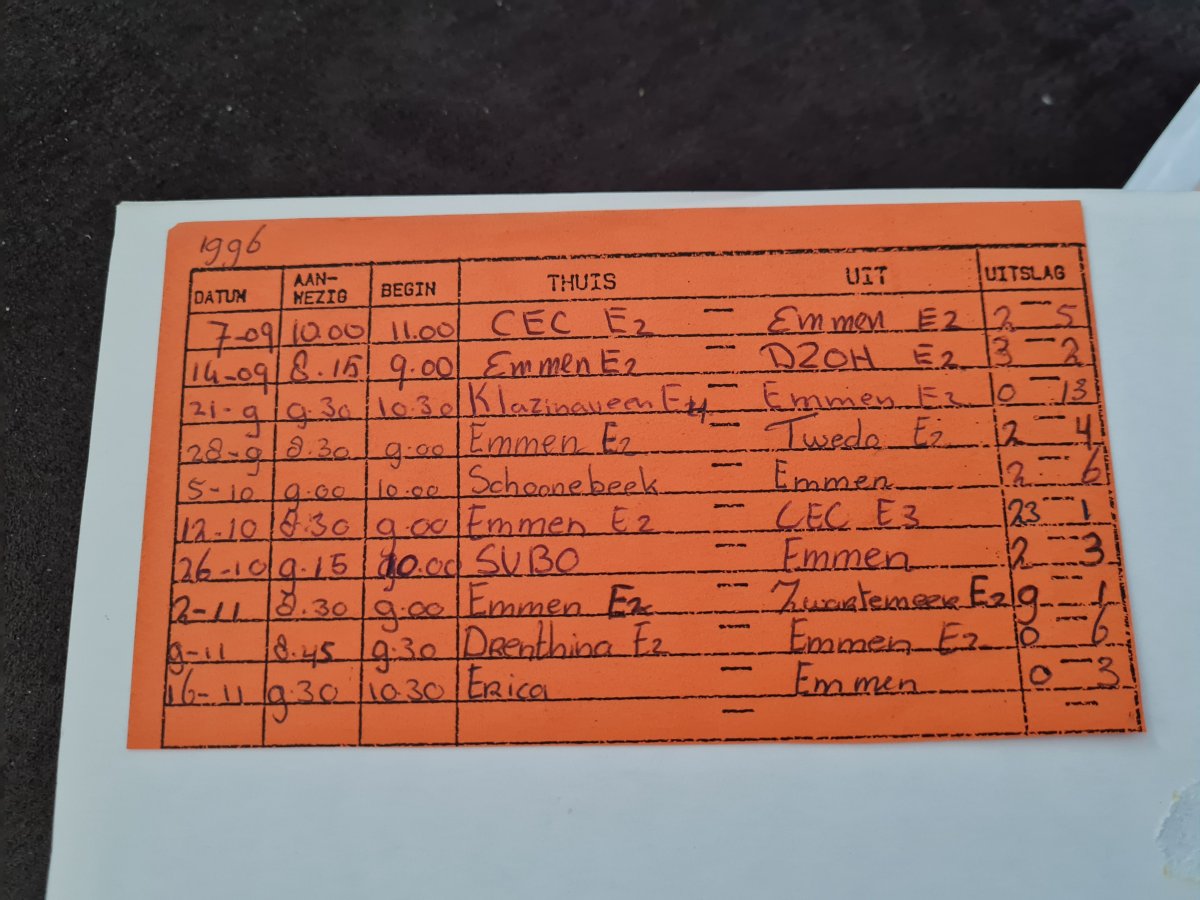 1996
DATUM AAN-WEZIG BEGIN THUIS UIT UITSLAG
7-09 10.00 11.00 CEC E2 — Emmen E2 2 — 5
14-09 8.15 9.00 Emmen E2 — DZOH E2 3 — 2
21-9 9.30 10.30 Klazinaveen E4 — Emmen E2 0 — 13
28-9 8.30 9.00 Emmen E2 — Twedo E2 2 — 4
5-10 9.00 10.00 Schoonebeek — Emmen 2 — 6
12-10 8.30 9.00 Emmen E2 — CEC E3 23 — 1
26-10 9.15 10.00 SVBO — Emmen 2 — 3
2-11 8.30 9.00 Emmen E2 — Zwartemeer E2 9 — 1
9-11 8.45 9.30 Drenthina E2 — Emmen E2 0 — 6
16-11 9.30 10.30 Erica — Emmen 0 — 3
— —